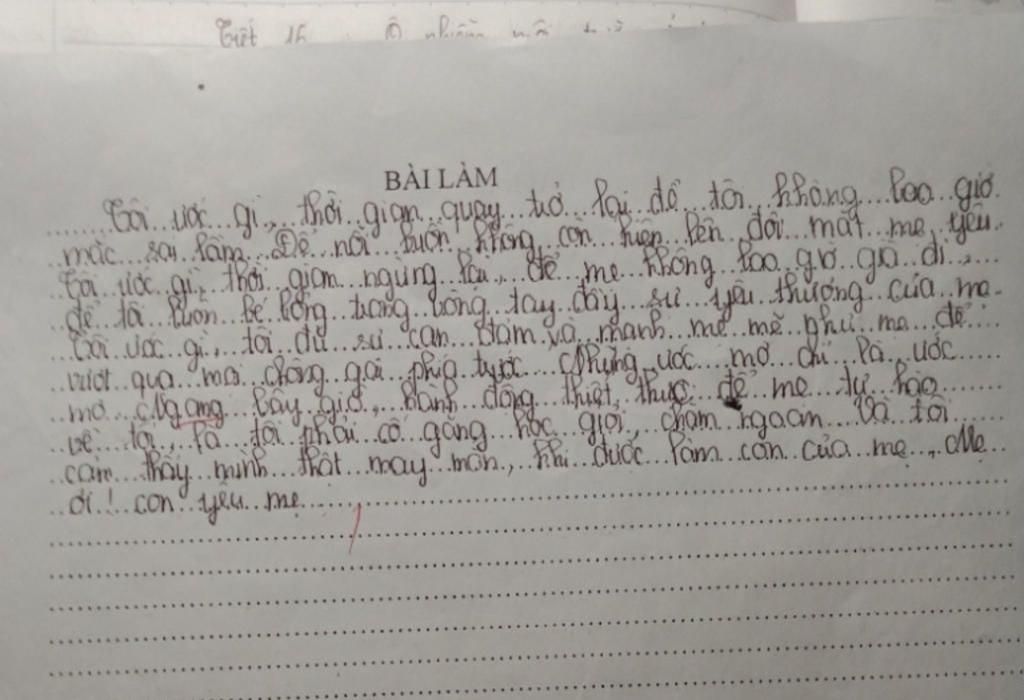 Tiết 15 Ô nhiễm môi
BÀI LÀM
Tôi ước gì, thời gian quay trở lại để tôi không bao giờ
mắc sai lầm. Để nỗi buồn không còn hiện lên đôi mắt mẹ yêu
Tôi ước gì, thời gian ngừng lại, để mẹ không bao giờ già đi,
để tôi luôn bé bổng trong vòng tay đầy sự yêu thương của mẹ.
Tôi ước gì, tôi đủ sự can đảm và mạnh mẽ mẽ như mẹ để
vượt qua mọi chông gai phía trước. Nhưng ước mơ chỉ là ước
mơ. Ngang bây giờ, hành động thiệt thực để mẹ tự hào
về tôi, là tôi phải cố gắng học giỏi, chăm ngoan. Và tôi
cảm thấy mình thật may mắn, khi được làm con của mẹ, Mẹ
ơi! con yêu mẹ